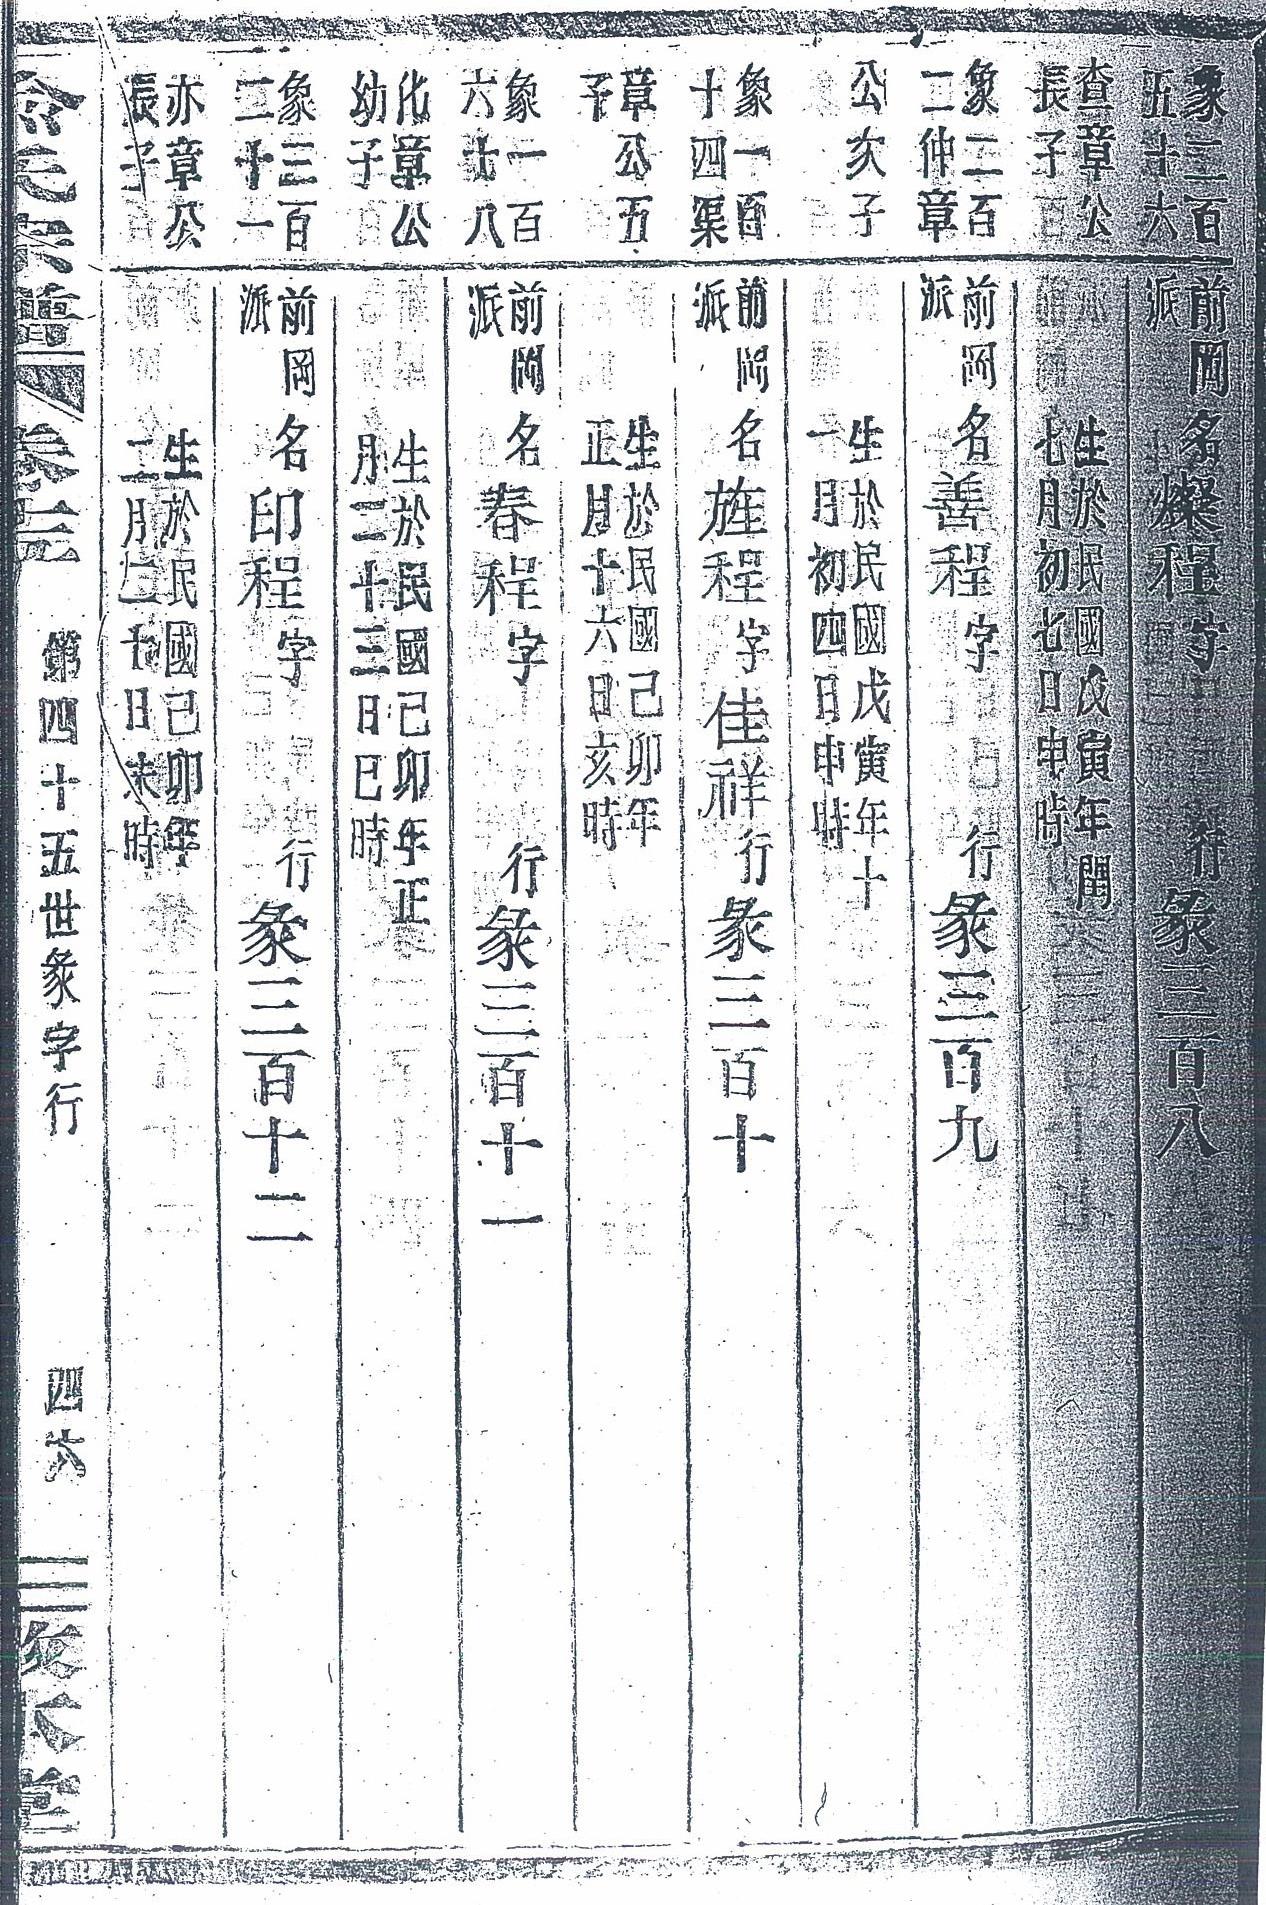 象三百五十六
查章公長子
前岡派
名燦程字
行彖三百八
生於民國戊寅年閏七月初七日申時
象二百二仲章公次子
前岡派
名善程字
行彖三百九
生於民國戊寅年十一月初四日申時
象一百十四渠章公五子
前岡派
名旌程字佳祥行彖三百十
生於民國己卯年正月十六日亥時
象一百六七八
化章公幼子
前岡派
名春程字
行彖三百十一
生於民國己卯年正月二十三日巳時
象三百二十一
亦章公長子
前岡派
名印程字
行彖三百十二
生於民國己卯年二月二十日未時
氏
譜
卷
第四十五世彖字行
四六
堂